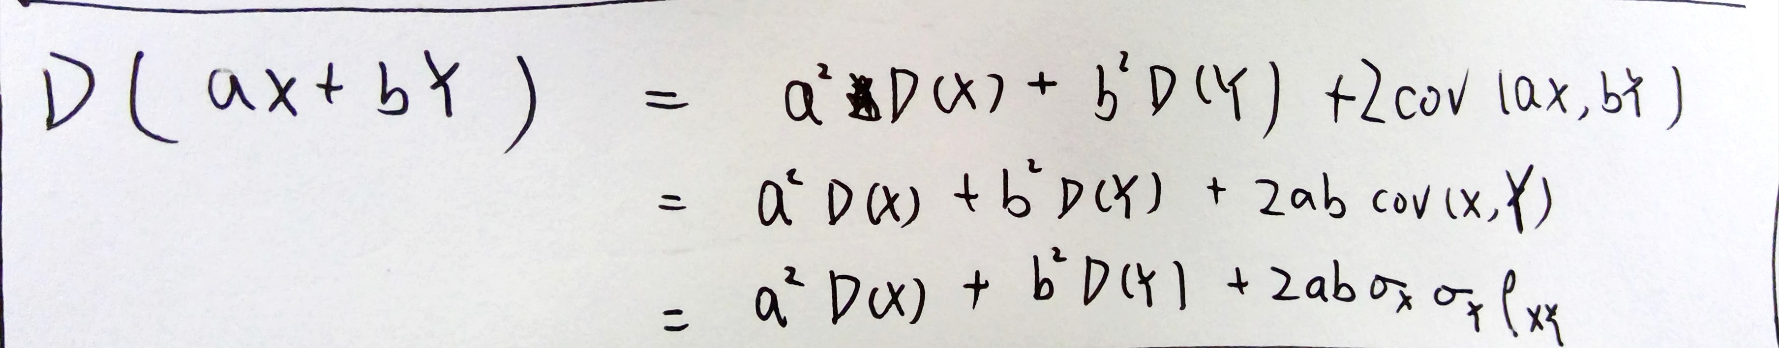 D(ax+bY) = a²D(X) + b²D(Y) + 2cov(ax,bY)
= a²D(X) + b²D(Y) + 2ab cov(x,Y)
= a²D(X) + b²D(Y) + 2abσₓσ_Yρ_XY